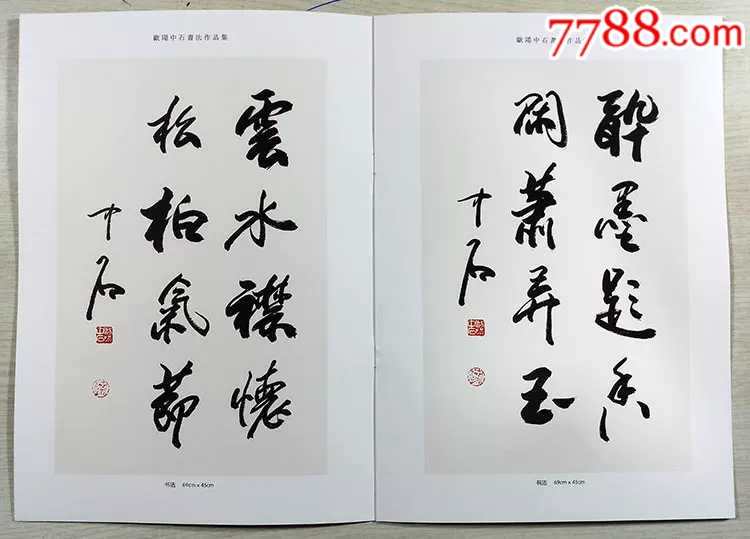 7788.com
歐陽中石書法作品集
雲水襟懷
松柏氣節
中石
书选 69cm x 45cm
歐陽中石書法作品
醉墨題香
閑蕭弄玉
中石
69cm x 45cm